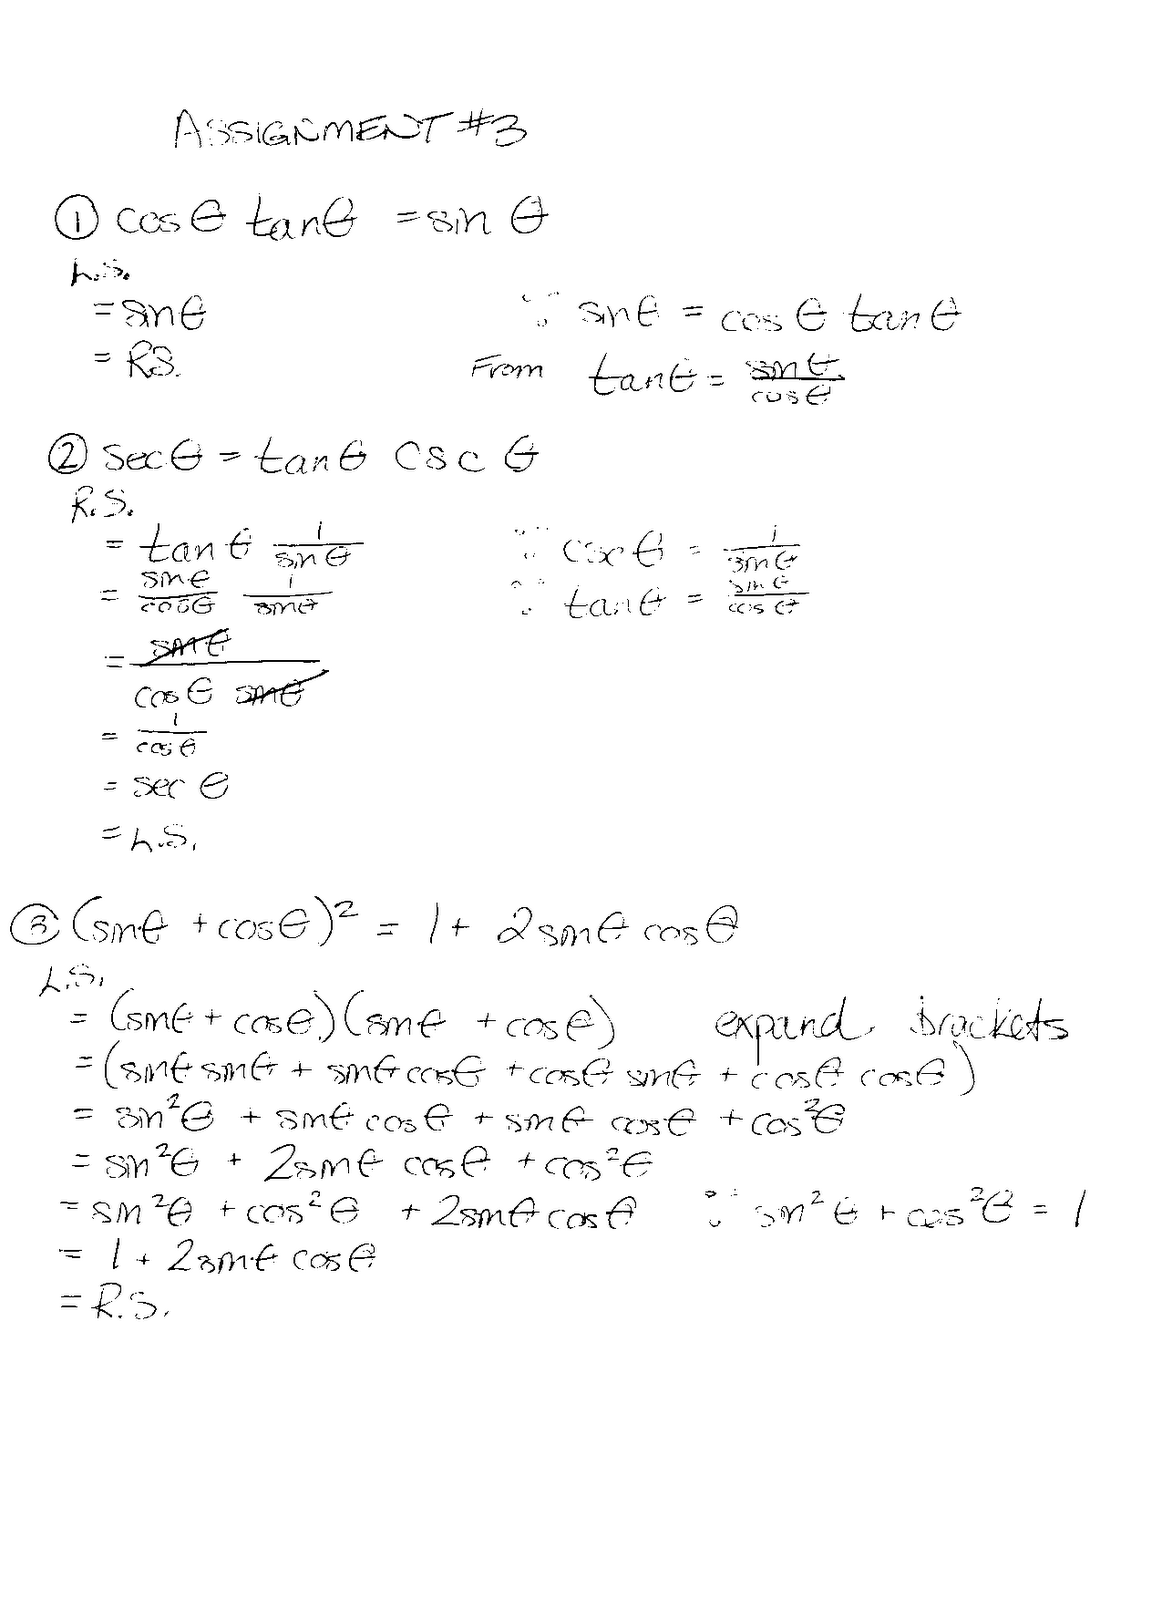 ASSIGNMENT #3
① cos θ tan θ = sin θ
L.S.
= sin θ ∵ sin θ = cos θ tan θ
= R.S. From tan θ = sin θ / cos θ
② sec θ = tan θ csc θ
R.S.
= tan θ 1 / sin θ ∵ csc θ = 1 / sin θ
= sin θ / cos θ 1 / sin θ ∵ tan θ = sin θ / cos θ
= sin θ / cos θ sin θ
= 1 / cos θ
= sec θ
= L.S.
③ (sin θ + cos θ)² = 1 + 2 sin θ cos θ
L.S.
= (sin θ + cos θ)(sin θ + cos θ) expand brackets
= (sin θ sin θ + sin θ cos θ + cos θ sin θ + cos θ cos θ)
= sin² θ + sin θ cos θ + sin θ cos θ + cos² θ
= sin² θ + 2 sin θ cos θ + cos² θ
= sin² θ + cos² θ + 2 sin θ cos θ ∵ sin² θ + cos² θ = 1
= 1 + 2 sin θ cos θ
= R.S.